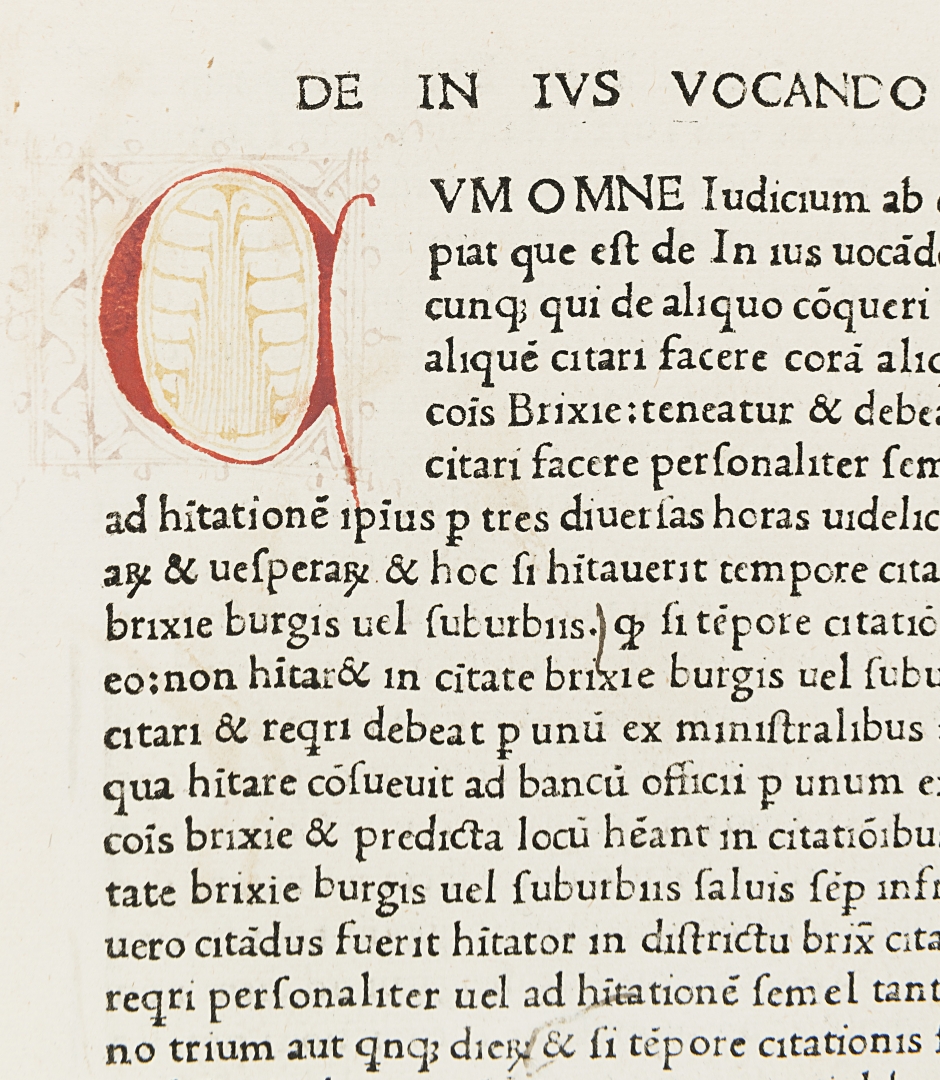 DE IN IVS VOCANDO
QVM OMNE Iudicium ab
piat que eſt de In ius uocād
cunqꝫ qui de aliquo cōqueri
aliquē citari facere corā aliq
cois̄ Brixie:teneatur & debea
citari facere perſonaliter ſem
ad hītationē ipīus ꝑ tres diuerſas horas uidelic
aꝝ & ueſperaꝝ & hoc ſi hītauerit tempore cita
brixie burgis uel ſuburbiis.) ꝙ ſi tēpore citatiō
eo:non hītar& in cītate brixie burgis uel ſubu
citari & reqri debeat ꝑ unū ex miniſtralibus
qua hītare cōſueuit ad bancū officii p unum e
coīs brixie & predicta locū hēant in citatiōibu
tate brixie burgis uel ſuburbiis ſaluis ſēp infr
uero citādus fuerit hītator in diſtrictu brix̄ cita
reqri perſonaliter uel ad hītationē ſemel tant
no trium aut qnqꝫ dieꝝ & ſi tēpore citationis